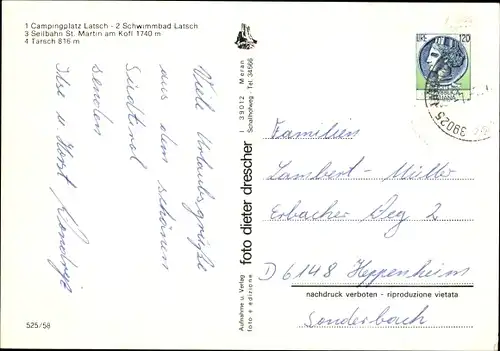 1 Campingplatz Latsch - 2 Schwimmbad Latsch
3 Seilbahn St. Martin am Kofl 1740 m
4 Tarsch 816 m
Viele Urlaubsgrüße
aus dem schönen
Südtirol
senden
Ilse u. Horst
525/58
Aufnahme u. Verlag
foto e edizione
foto dieter drescher
I 39012 Meran
Schafholweg · Tel. 34566
LIRE 120
39025
Familien
Lambert-Müller
Erbacher Weg 2
D 6148 Heppenheim
nachdruck verboten - riproduzione vietata
Sonderbach